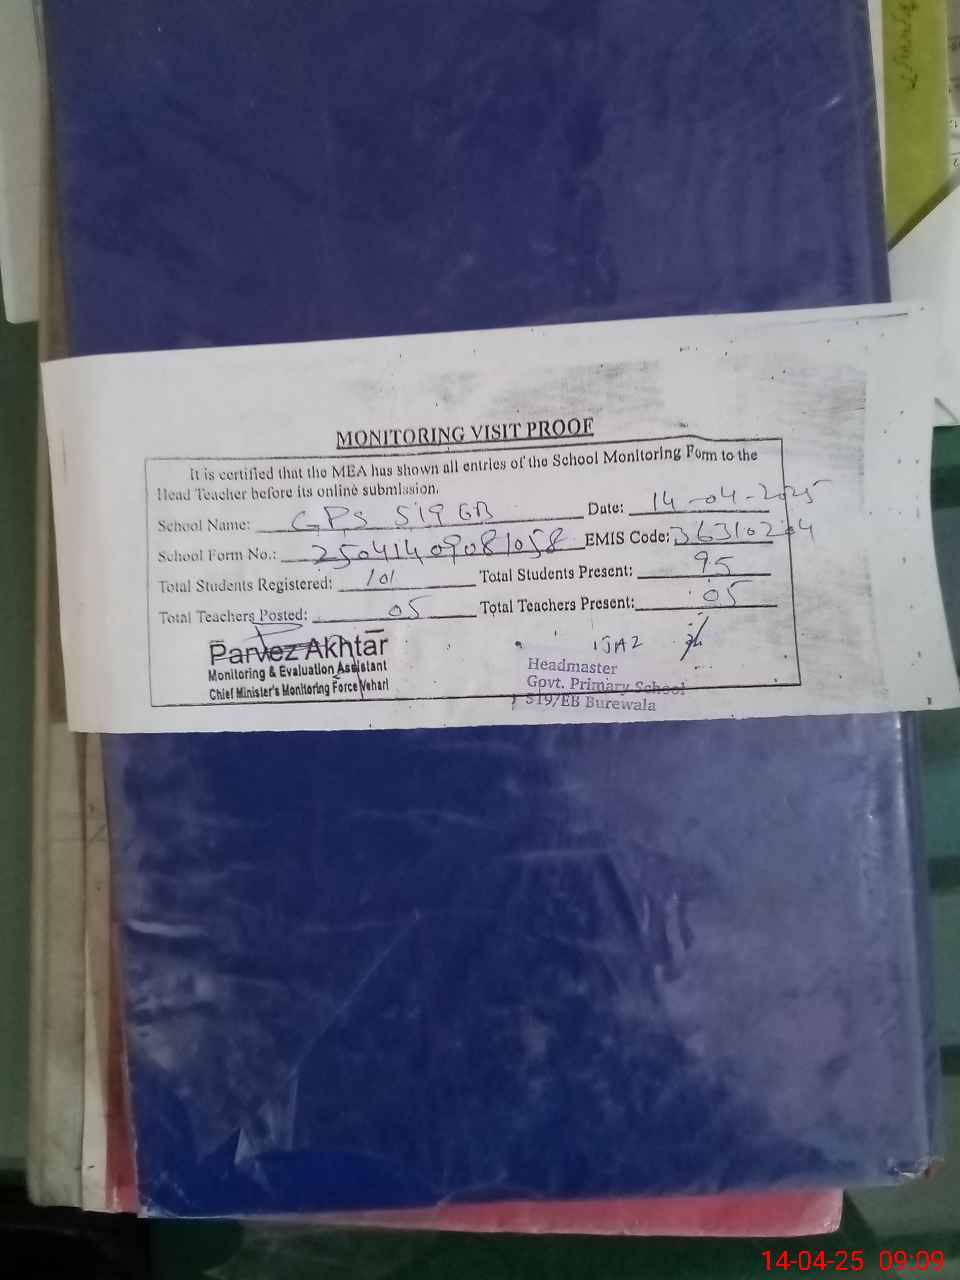 MONITORING VISIT PROOF
It is certified that the MEA has shown all entries of the School Monitoring Form to the
Head Teacher before its online submission.
School Name: GPS 519 EB Date: 14-04-2025
School Form No.: 25041409081058 EMIS Code: 36310204
Total Students Registered: 101 Total Students Present: 95
Total Teachers Posted: 05 Total Teachers Present: 05
Parvez Akhtar
Monitoring & Evaluation Assistant
Chief Minister's Monitoring Force Vehari
IJAZ
Headmaster
Govt. Primary School
519/EB Burewala
14-04-25 09:09